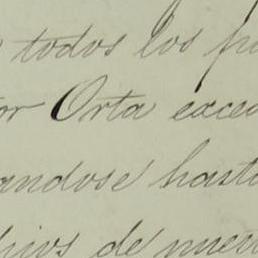 todos los
or Orta exce
andose hasta
hijos de nuev